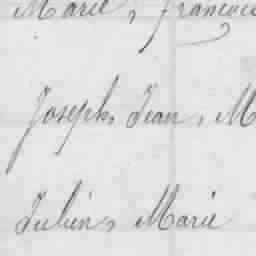 Marie, Françoi
Joseph, Jean, M
Julien, Marie